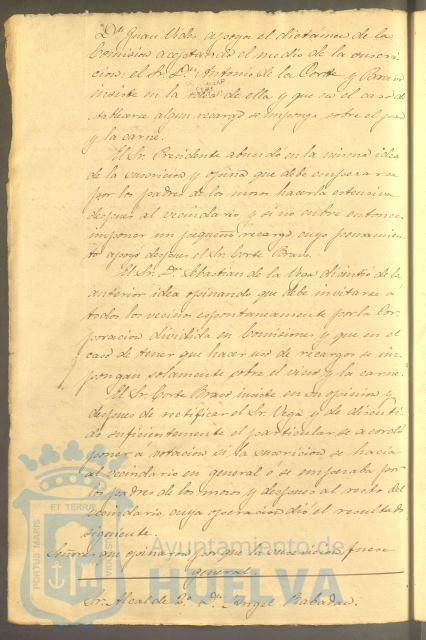 Dn. Ignacio Vides apoya el dictámen de la
Comision aceptando el medio de la suscri-
cion; el Sr. Dn. Antonio de la Corte y Bravo
insiste en la idea de ella y que en el caso de
hallarse algun recargo se imponga sobre el pan
y la carne.
El Sr. Presidente abundó en la misma idea
de la suscricion y opina que debe empezarse
por los padres de los mozos hacerla estensiva
despues al vecindario, y si no cubre entonces
imponer un pequeño recargo, cuyo pensamien-
to apoyó despues el Sr. Corte Bravo.
El Sr. Dn. Sebastian de la Vega disintió de la
anterior idea opinando que debe invitarse á
todos los vecinos espontaneamente por la Cor-
poracion dividida en Comisiones y que en el
caso de tener que hacer uso de recargos se im-
pongan solamente sobre el vino y la carne.
El Sr. Corte Bravo insiste en su opinion y
despues de rectificar el Sr. Vega y de discuti-
do suficientemente el particular se acordó
poner á votacion si la suscricion se hacia
al vecindario en general o se empezaba por
los padres de los mozos y despues al resto del
vecindario, cuya operacion dió el resultado
siguiente.
Señores que opinaron porque la suscricion fuese
general
Sr. Alcalde 2º Dn. Angel Rabadan.
PORTUS MARIS ET TERRAE CUSTODIA
Ayuntamiento de
HUELVA